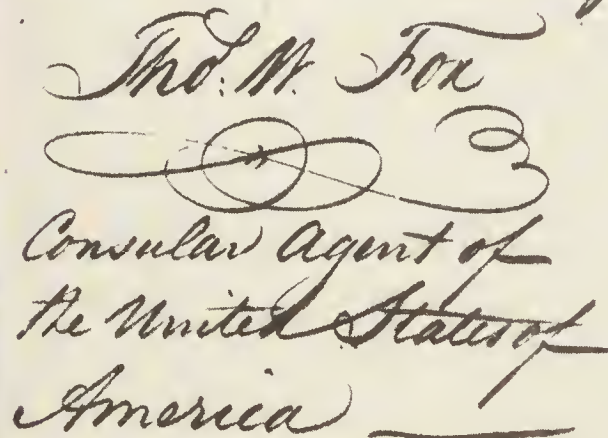 Tho.s W. Fox
Consular Agent of
the United States of
America